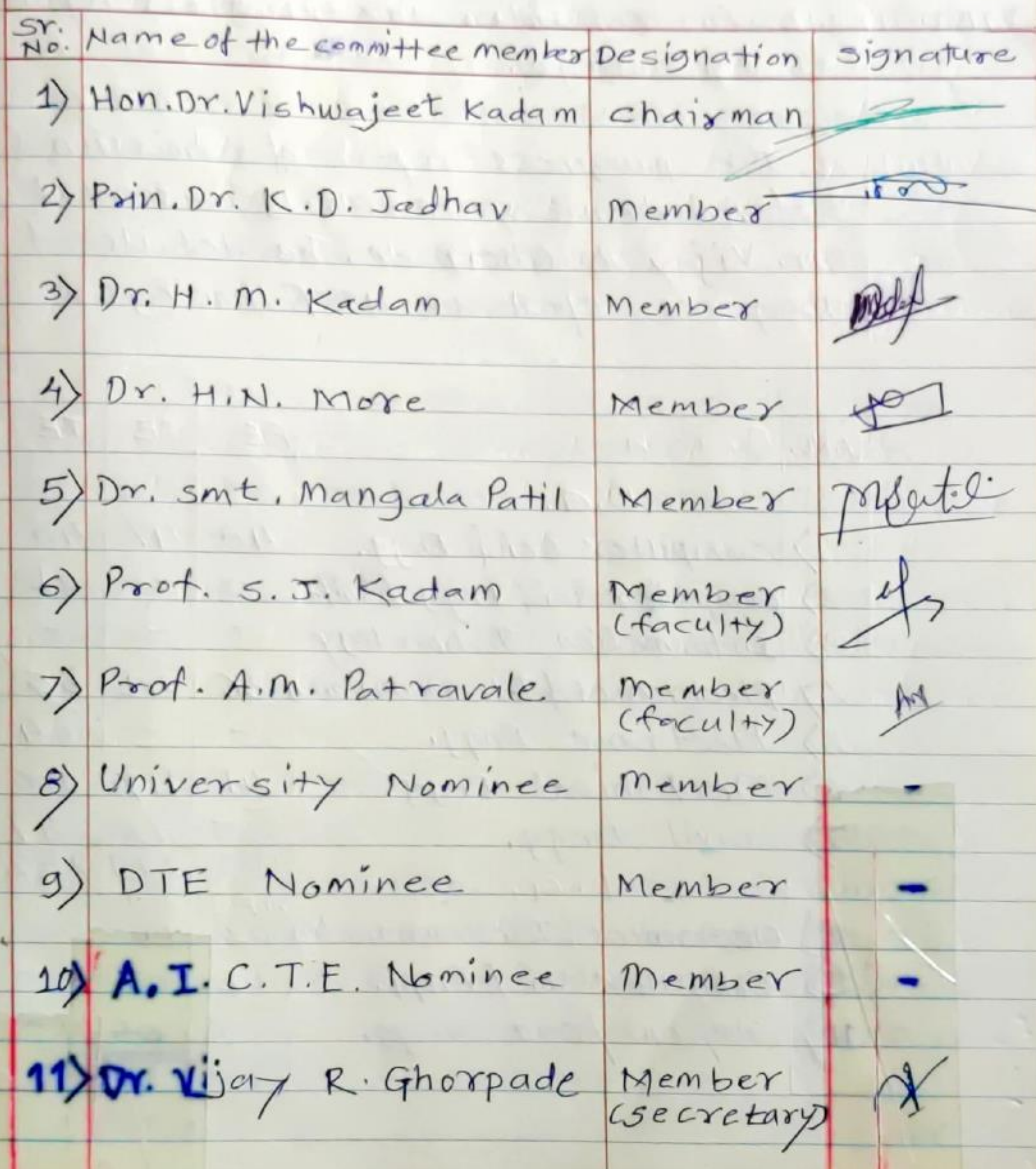 Sr. No. Name of the committee member Designation Signature
1) Hon. Dr. Vishwajeet Kadam Chairman
2) Prin. Dr. K.D. Jadhav Member
3) Dr. H. M. Kadam Member
4) Dr. H.N. More Member
5) Dr. smt. Mangala Patil Member
6) Prof. S. J. Kadam Member
(faculty)
7) Prof. A.M. Patravale Member
(faculty)
8) University Nominee Member -
9) DTE Nominee Member -
10) A.I.C.T.E. Nominee Member -
11) Dr. Vijay R. Ghorpade Member
(secretary)